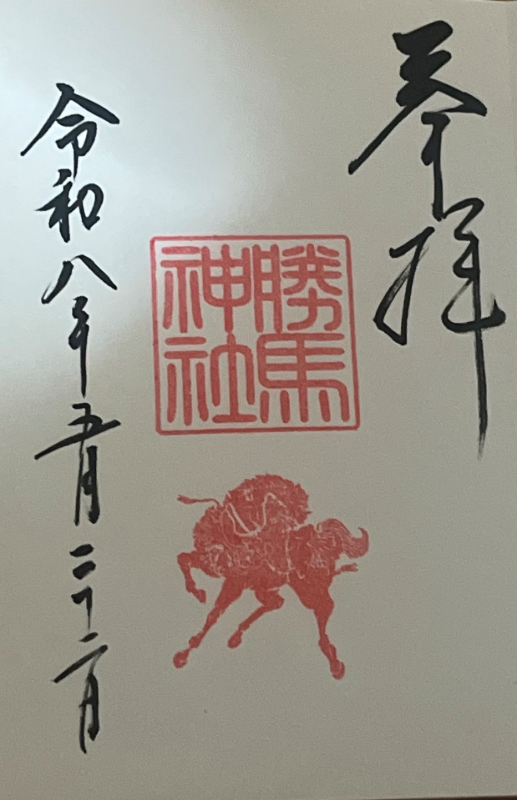 奉拝
勝馬
神社
令和八年五月二十二日